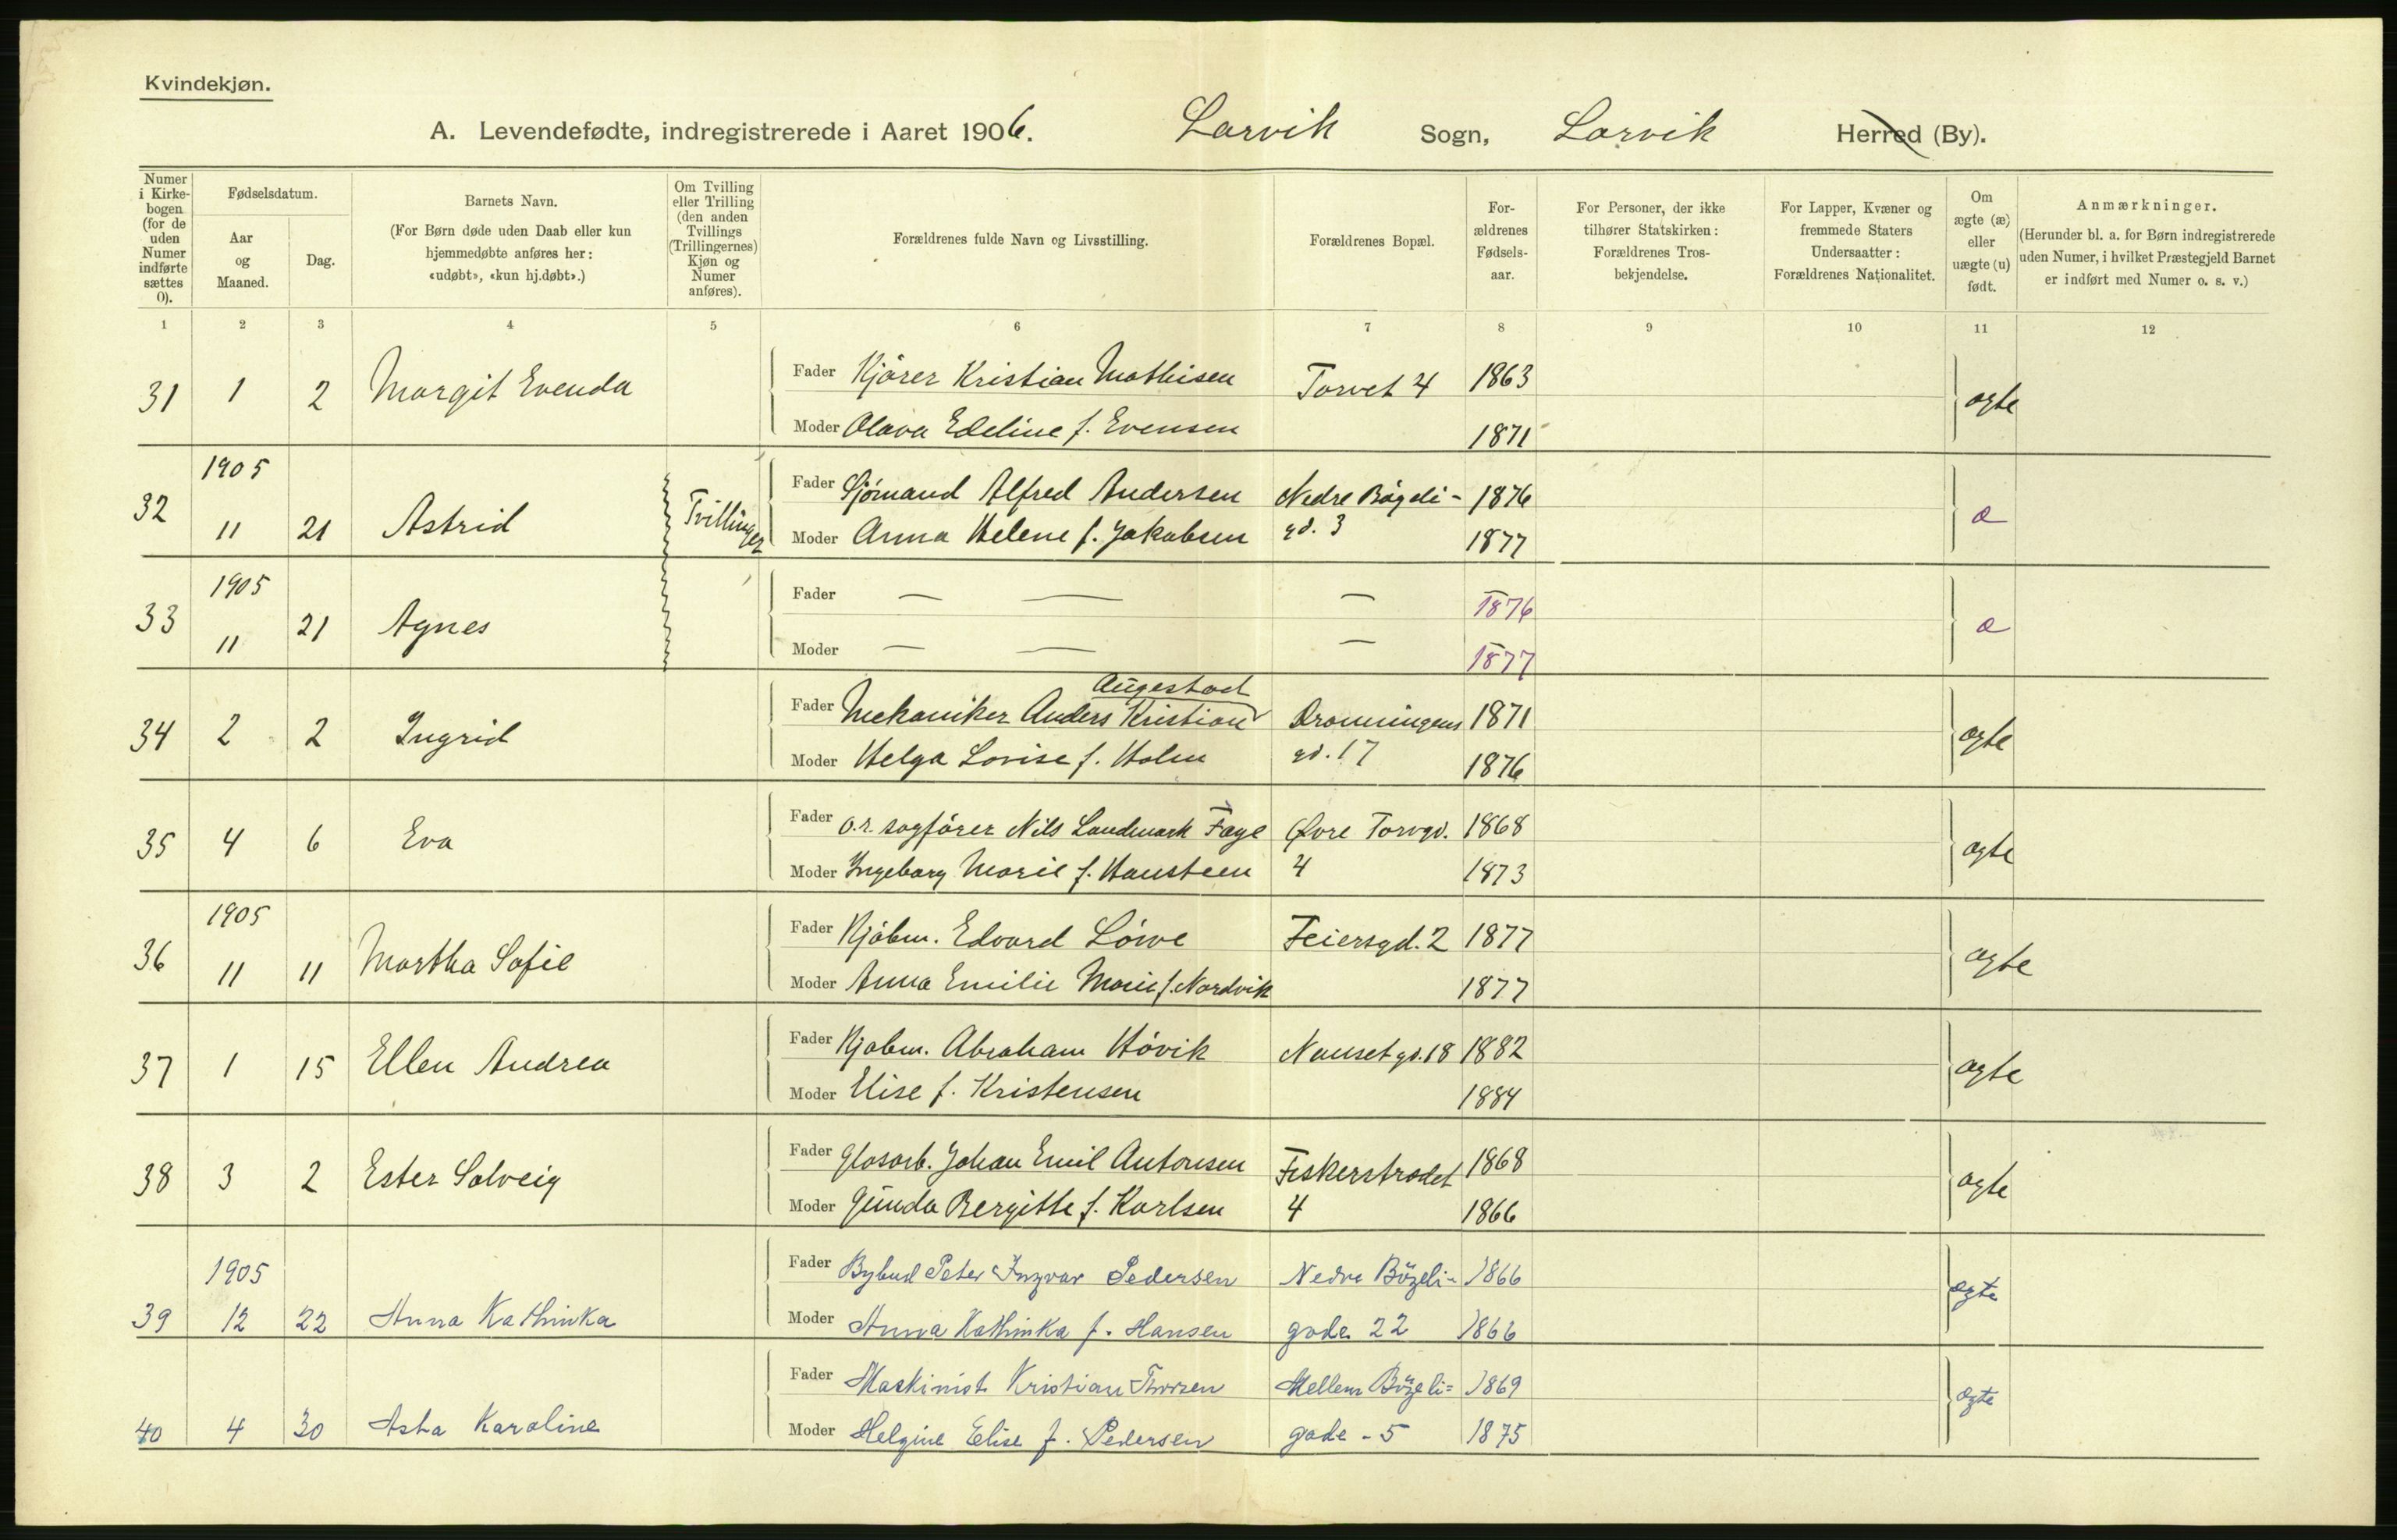 Kvindekjøn.
A. Levendefødte, indregistrerede i Aaret 1906. Larvik Sogn, Larvik Herred (By).
Numer i Kirkebogen (for de uden Numer indførte sættes 0).
Fødselsdatum.
Aar og Maaned.
Dag.
Barnets Navn.
(For Børn døde uden Daab eller kun hjemmedøbte anføres her: «udøbt», «kun hj.døbt».)
Om Tvilling eller Trilling (den anden Tvillings (Trillingernes) Kjøn og Numer anføres).
Forældrenes fulde Navn og Livsstilling.
Forældrenes Bopæl.
Forældrenes Fødselsaar.
For Personer, der ikke tilhører Statskirken: Forældrenes Trosbekjendelse.
For Lapper, Kvæner og fremmede Staters Undersaatter: Forældrenes Nationalitet.
Om ægte (æ) eller uægte (u) født.
Anmærkninger.
(Herunder bl. a. for Børn indregistrerede uden Numer, i hvilket Præstegjeld Barnet er indført med Numer o. s. v.)
1 2 3 4 5 6 7 8 9 10 11 12
31 1 2 Margit Evenda Fader Kjører Kristian Mathisen Torvet 4 1863 ægte
Moder Olava Edeline f. Evensen 1871
1905
32 11 21 Astrid Tvillinger Fader Sjømand Alfred Andersen Nedre Bøgeli- 1876 æ
Moder Anna Helene f. Jakobsen gd. 3 1877
1905
33 11 21 Agnes Fader — — — 1876 æ
Moder — — — 1877
Augestad
34 2 2 Ingrid Fader Mekaniker Anders Kristian Dronningens 1871 ægte
Moder Helga Lovise f. Holm gd. 17 1876
35 4 6 Eva Fader O.r. sagfører Nils Landmark Faye Øvre Torvgd. 1868 ægte
Moder Ingeborg Marie f. Hansteen 4 1873
1905
36 11 11 Martha Sofie Fader Kjøbm. Edvard Löwe Feiersgd. 2 1877 ægte
Moder Anna Emilie Marie f. Nordvik 1877
37 1 15 Ellen Andrea Fader Kjøbm. Abraham Høvik Nansetgd. 18 1882 ægte
Moder Elise f. Kristensen 1884
38 3 2 Ester Solveig Fader Glasarb. Johan Emil Antonsen Fiskerstrædet 1868 ægte
Moder Gunda Bergitte f. Karlsen 4 1866
1905
39 12 22 Anna Kathinka Fader Bybud Peter Ingvar Pedersen Nedre Bögeli- 1866 ægte
Moder Anna Kathinka f. Hansen gade 22 1866
40 4 30 Asta Karoline Fader Maskinist Kristian Thorsen Mellem Bögeli= 1869 ægte
Moder Helgine Elise f. Pedersen gade - 5 1875